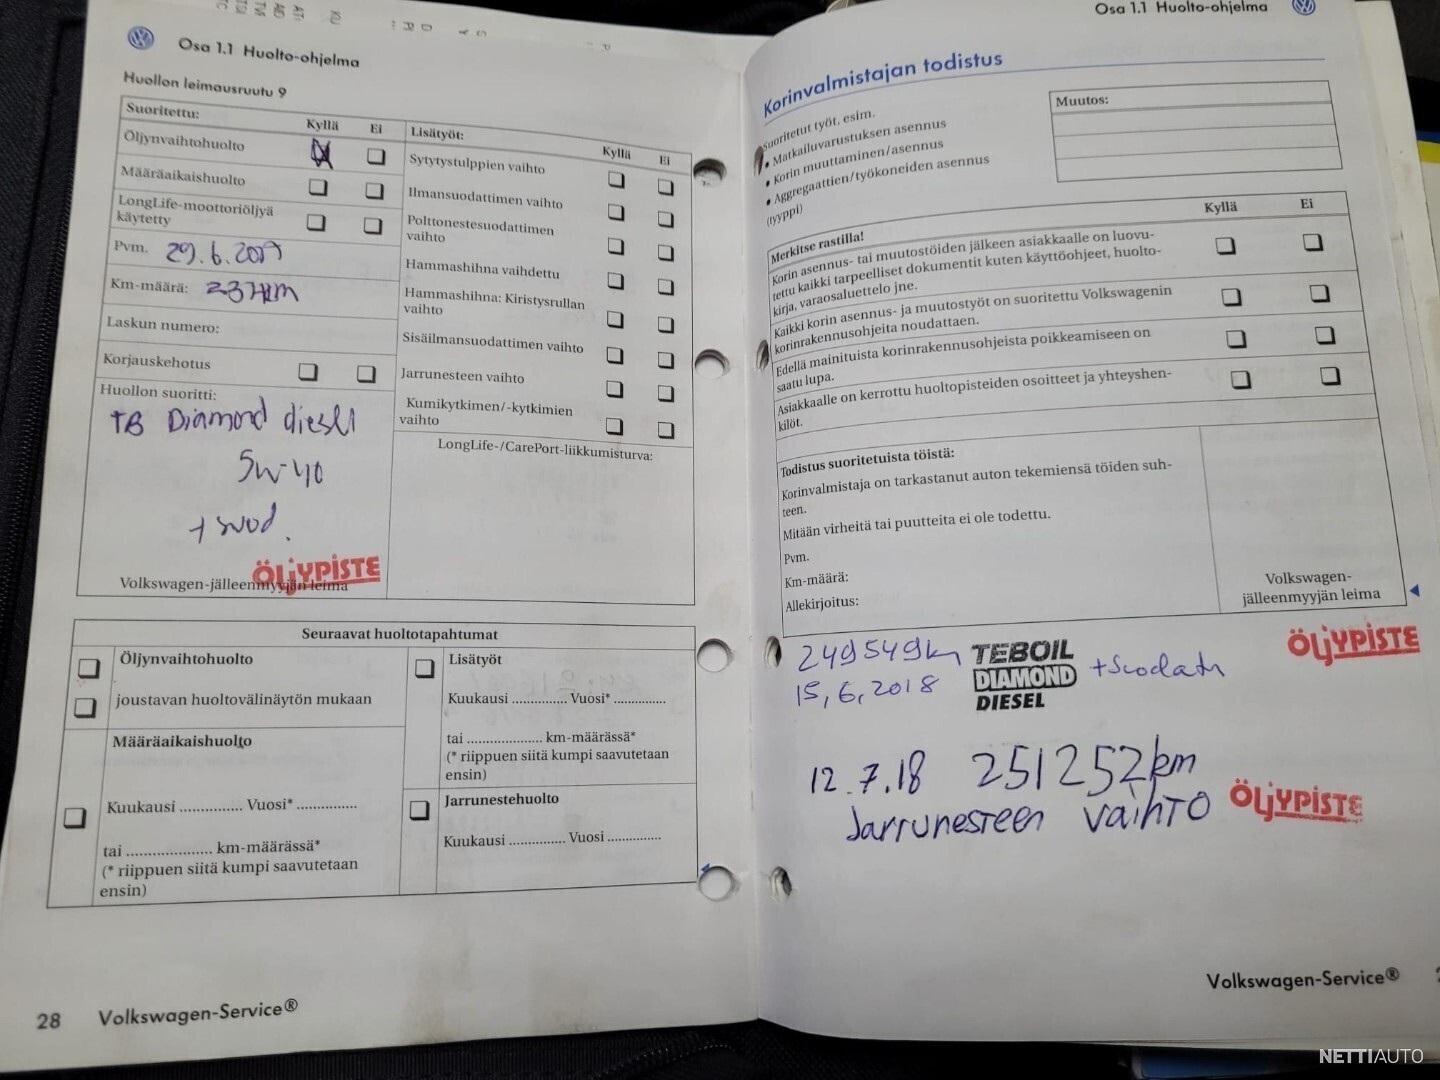 Osa 1.1 Huolto-ohjelma
Huollon leimausruutu 9
Suoritettu:
Kyllä
Ei
Öljynvaihtohuolto
Määräaikaishuolto
LongLife-moottoriöljyä
käytetty
Pvm.
29.6.2017
Km-määrä:
237tkm
Laskun numero:
Korjauskehotus
Huollon suoritti:
TB Diamond diesel
5w-40
+ suod.
ÖLJYPISTE
Volkswagen-jälleenmyyjän leima
Lisätyöt:
Kyllä
Ei
Sytytystulppien vaihto
Ilmansuodattimen vaihto
Polttonestesuodattimen
vaihto
Hammashihna vaihdettu
Hammashihna: Kiristysrullan
vaihto
Sisäilmansuodattimen vaihto
Jarrunesteen vaihto
Kumikytkimen/-kytkimien
vaihto
LongLife-/CarePort-liikkumisturva:
Seuraavat huoltotapahtumat
Öljynvaihtohuolto
joustavan huoltovälinäytön mukaan
Määräaikaishuolto
Kuukausi .............. Vuosi* ..............
tai .................... km-määrässä*
(* riippuen siitä kumpi saavutetaan
ensin)
Lisätyöt
Kuukausi .............. Vuosi* .............
tai .................... km-määrässä*
(* riippuen siitä kumpi saavutetaan
ensin)
Jarrunestehuolto
Kuukausi .............. Vuosi .............
28 Volkswagen-Service®
Osa 1.1 Huolto-ohjelma
Korinvalmistajan todistus
Suoritetut työt, esim.
• Matkailuvarustuksen asennus
• Korin muuttaminen/asennus
• Aggregaattien/työkoneiden asennus
(tyyppi)
Muutos:
Merkitse rastilla!
Kyllä
Ei
Korin asennus- tai muutostöiden jälkeen asiakkaalle on luovu-
tettu kaikki tarpeelliset dokumentit kuten käyttöohjeet, huolto-
kirja, varaosaluettelo jne.
Kaikki korin asennus- ja muutostyöt on suoritettu Volkswagenin
korinrakennusohjeita noudattaen.
Edellä mainituista korinrakennusohjeista poikkeamiseen on
saatu lupa.
Asiakkaalle on kerrottu huoltopisteiden osoitteet ja yhteyshen-
kilöt.
Todistus suoritetuista töistä:
Korinvalmistaja on tarkastanut auton tekemiensä töiden suh-
teen.
Mitään virheitä tai puutteita ei ole todettu.
Pvm.
Km-määrä:
Allekirjoitus:
Volkswagen-
jälleenmyyjän leima
249549km
15,6,2018
TEBOIL
DIAMOND
DIESEL
+Suodatin
ÖLJYPISTE
12.7.18 251252km
Jarrunesteen vaihto
ÖLJYPISTE
Volkswagen-Service®
NETTIAUTO